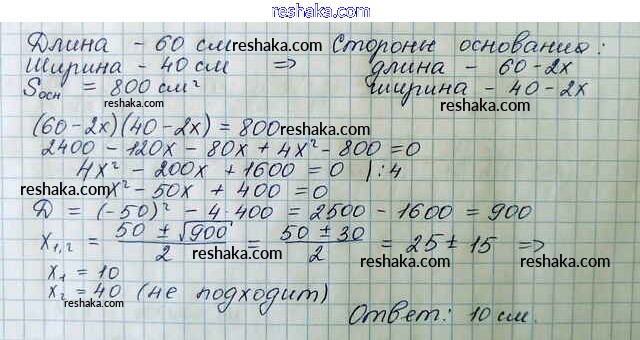 reshaka.com
Длина - 60 см reshaka.com Стороны основания:
ширина - 40 см ⇒ длина - 60-2x
Sосн = 800 см² reshaka.com ширина - 40-2x
reshaka.com reshaka.com
(60-2x)(40-2x) = 800 reshaka.com
2400 - 120x - 80x + 4x² - 800 = 0
4x² - 200x + 1600 = 0 |:4
reshaka.com x² - 50x + 400 = 0 reshaka.com
D = (-50)² - 4·400 = 2500 - 1600 = 900
x₁,₂ = (50 ± √900)/2 = (50 ± 30)/2 = 25 ± 15 ⇒
reshaka.com reshaka.com reshaka.com
x₁ = 10
x₂ = 40 (не подходит)
reshaka.com Ответ: 10 см.
reshaka.com
reshaka.com